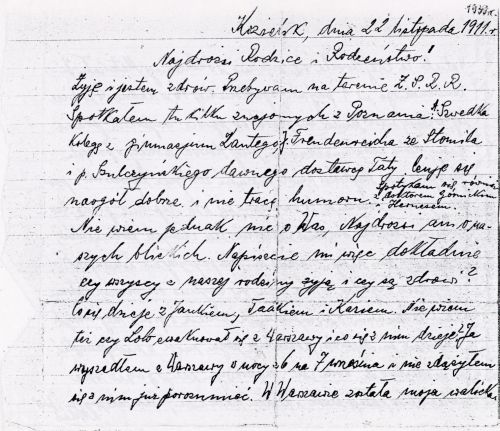 1939 r.
Kozielsk, dnia 22 listopada 1911.r
Najdrożsi Rodzice i Rodzeństwo!
Żyję i jestem zdrów. Przebywam na terenie Z.S.R.R.
Spotkałem tu kilku znajomych z Poznania: Szwedka
kolegę z gimnazjum Zantego, Freudenreicha ze Stomila
i p. Szulczyńskiego dawnego dostawcę Taty. Czuję się
naogół dobrze i nie tracę humoru. Spotykam się również
z doktorem Górnickim
i Hernesem.
Nie wiem jednak nic o Was, Najdrożsi ani o na-
szych bliskich. Napiszcie mi więc dokładnie
czy wszyscy z naszej rodziny żyją i czy są zdrowi?
Co się dzieje z Jankiem, Tadkiem i Kaziem. Nie wiem
też czy Lolo ewakuował się z Warszawy i co się z nim dzieje? Ja
wyszedłem z Warszawy w nocy z 6 na 7 września i nie zdążyłem
się z nim już porozumieć. W Warszawie została moja walizka